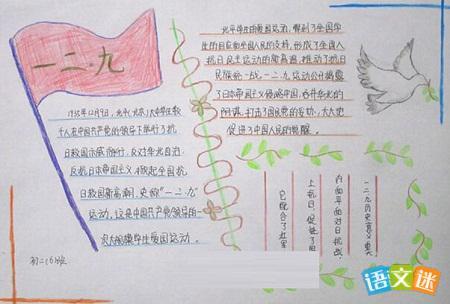 一二·九
1935年12月9日，北平（北京）大中学生数
千人在中国共产党的领导下举行了抗
日救国示威游行，反对华北自治，
反抗日本帝国主义，掀起全国抗
日救国新高潮，史称“一二·九”
运动，这是中国共产党领导的一
次大规模学生爱国运动。
初二（6）班
北平学生的爱国运动，得到了全国学
生的响应和全国人民的支持，形成了全国人民
抗日民主运动的新高潮，推动了抗日
民族统一战，一二·九运动公开揭露
了日本帝国主义侵略中国，吞并华北的
阴谋，打击了国民党的妥协，大大地
促进了中国人民的觉醒。
一二·九历史意义
内和平和对日抗战
上抗日，促进了
它配合了红军
语文迷